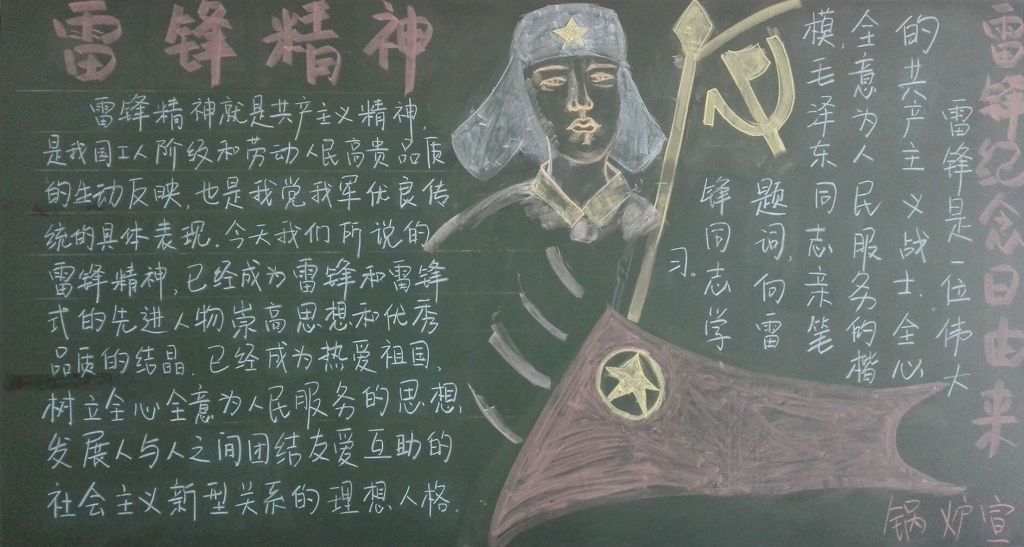 雷锋精神
雷锋精神就是共产主义精神,
是我国工人阶级和劳动人民高贵品质
的生动反映,也是我党我军优良传
统的具体表现.今天我们所说的
雷锋精神,已经成为雷锋和雷锋
式的先进人物崇高思想和优秀
品质的结晶.已经成为热爱祖国,
树立全心全意为人民服务的思想,
发展人与人之间团结友爱互助的
社会主义新型关系的理想人格.
雷锋纪念日由来
雷锋是一位伟大
的共产主义战士.全心
全意为人民服务的楷
模,毛泽东同志亲笔
题词,向雷
锋同志学
习.
锅炉宣